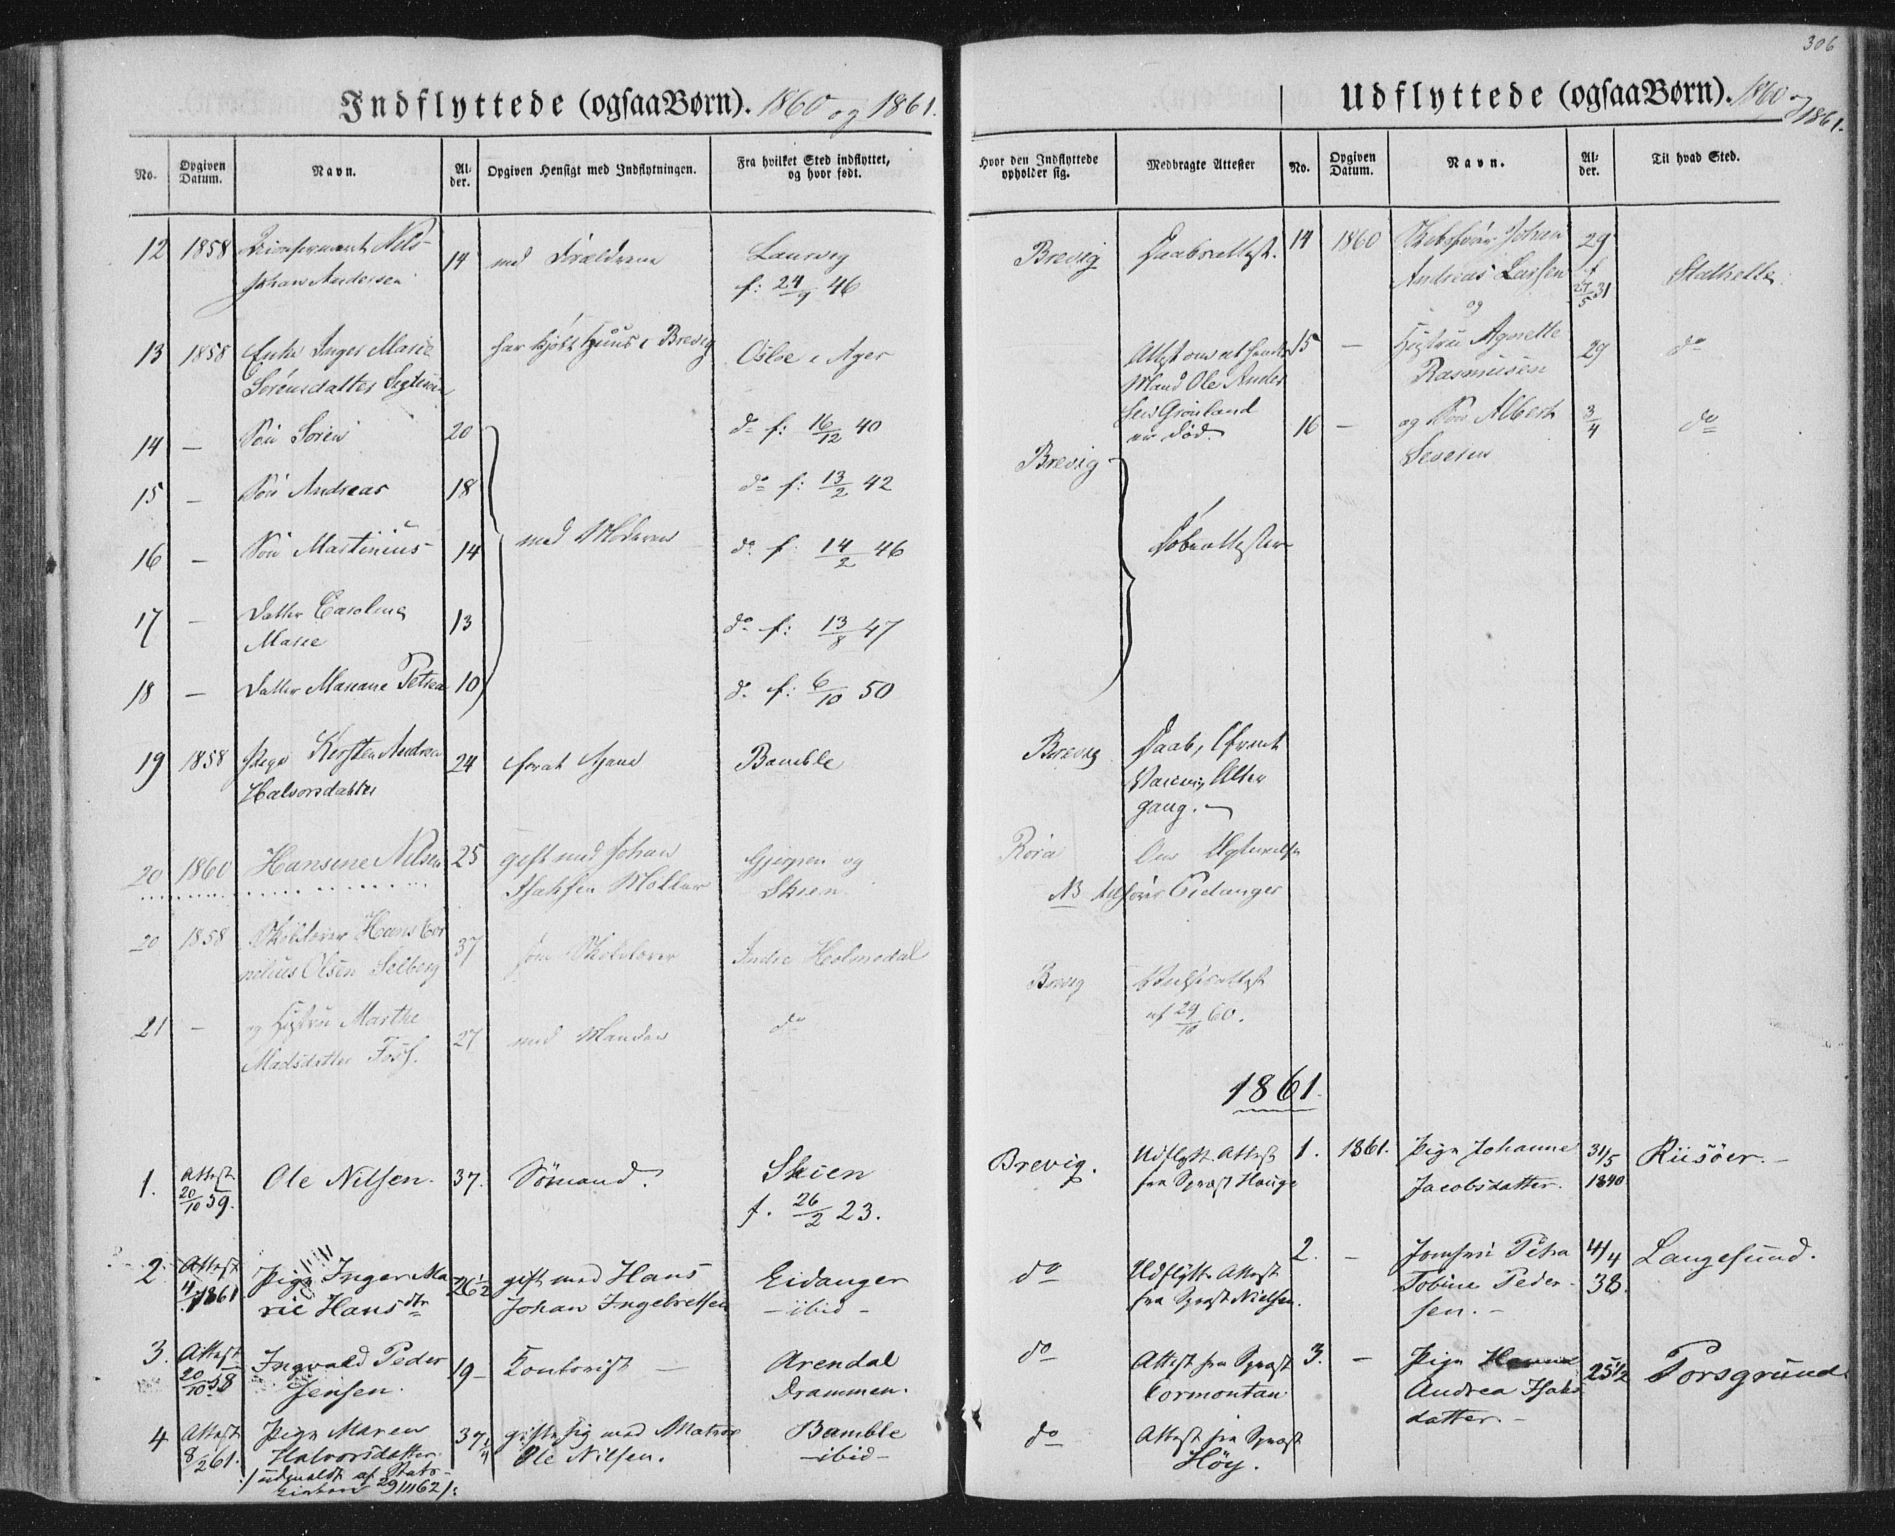 306
Indflyttede (ogsaa Børn). 1860 og 1861.
No.
Opgiven Datum.
Navn.
Al-der.
Opgiven Hensigt med Indflytningen.
Fra hvilket Sted indflyttet, og hvor født.
Hvor den Indflyttede opholder sig.
Medbragte Attester
12 1858 Nils
Johan Andersen 14 med Forældrene Laurvig
f: 24/9 46 Brevig Daabsattest.
13 1858 Enke Inger Marie
Sörensdatter har kjøbt Huus i Brevig Oslo i Ager Attest om at hendes
Mand Ole Anders
Grönland
er død.
14 — Sön Sören 20 do f: 16/12 40 Brevig
15 — Sön Andreas 18 do f: 13/2 42
16 — Sön Martinius 14 med Moderen do f: 14/2 46 Döbeattester
17 — Datter Caroline
Marie 13 do f: 13/8 47
18 — Datter Mariane Petrea 10 do f: 6/10 50
19 1858 Pige Kirsten Andrea
Halvorsdatter 24 for at tjene Bamble Brevig Daab,
Altergang.
20 1860 Hansine Nilsen 25 gift med Johan
Isaksen Gjerpen og
Skien Röra
NB tilhører Eidanger
20 1858 Skolelærer Hans Cornelius Olsen Solberg 37 som Skolelærer Indre Holmedal Brevig
af 29/10 60.
21 — og Hustru Marthe
Madsdatter 27 med Manden do
1861.
1. Attest
20/10 59. Ole Nilsen. 37. Sömand. Skien
f. 26/2 23. Brevig. Udflytt. Attest
fra Sprest Hauge
2. Attest
1861 Pige Inger Marie Hansdtr 26½ gift med Hans
Johan Ingebretsen Eidanger
— ibid — do Udflytt. Attest
fra Sprest Nielsen.
3. Attest
20/10 58 Ingvald Peder
Jensen. 19 — Contorist — Arendal
Drammen. do Attest fra Sprest
Cormontan
4 Attest
8/2 61. Pige Maren
Halvorsdatter
/: udmeldt af Stats-
kirken 29/11 62 :/ 37 gifter sig med Matros
Ole Nilsen. Bamble
— ibid — do Attest fra Sprest
Höy.
Udflyttede (ogsaa Børn). 1860 og 1861.
No.
Opgiven Datum.
Navn.
Al-der.
Til hvad Sted.
14 1860 Johan
Andreas Larsen 29
f
27/5 31 Stathelle
og
15 — Hustru Agnette
Rasmusen 29 do
16 — og Sön Albert
Severin 3/4 do
1. 1861. Pige Johanne
Jacobsdatter. 31/5
1840 Riisöer. —
2. — Jomfru Petra
Tobine Pedersen. — 4/4
38. Langesund.
3. — Pige
Andrea Isaksdatter. — 25½ Porsgrund